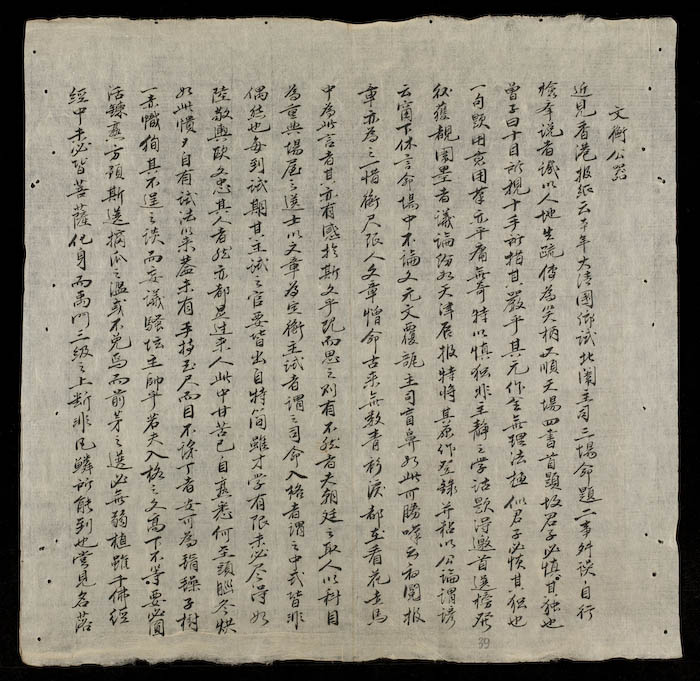 文衡公器
近見香港报紙云本年大清國鄉試北闈主司三場命題二事舛誤自行
檢舉说者诚以人地生疏傳為笑柄又順天場四書首題故君子必慎其独也
曾子曰十目所視十手所指其嚴乎其元作全無理法極似君子必慎其独也
一句題用意用筆亦平庸無奇特以慎独非主静之学诂題得邀首選榜發
後獲覩闈墨者議論紛如天津辰报特將其原作登錄并粘以公論謂諺
云窗下休言命場中不論文元文覆詭主司盲鼻如此可勝嘆云初閱报
章亦為之惜衡尺限人文章憎命古来無数青衫淚都在看花走馬
中為此言者其亦有感於斯文乎既而思之则有不然者夫朝廷之取人以科目
為重典場屋之選士以文章為定衡主試者謂之司命入格者謂之中式皆非
偶然也每到試期其主試之官要皆出自特简雖才学有限未必尽得如
陸敬輿歐文忠其人者然亦都是过来人此中甘苦已自熟悉何至頭腦冬烘
如此憒〻自有試法以来蓋未有手持玉尺而目不識丁者安可為
一赤幟狥其不逞之谈而妄議騷坛主帥乎若夫入格之文高下不等要必圓
活錬熟方预斯選摘瓜之濫或不免焉而前茅之選必無弱植雖千佛經
經中未必皆菩薩化身而禹門三級之上断非凡鱗所能到也嘗見名落
39